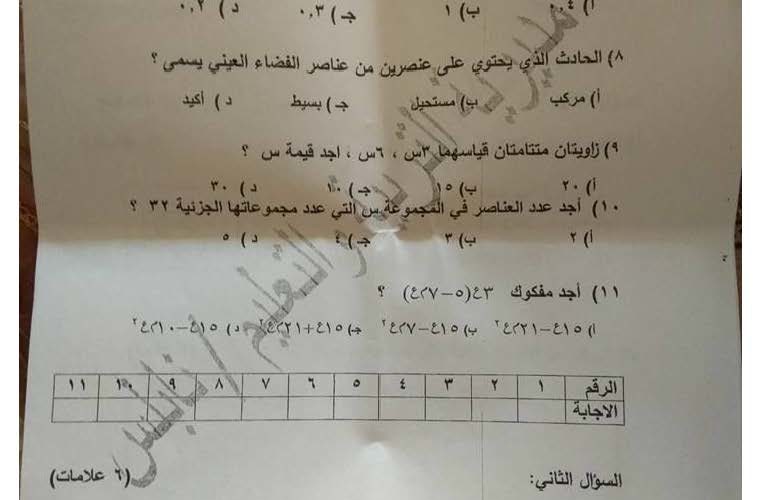 أ) ٠,٤ ب) ١ جـ) ٠,٣ د) ٠,٢
٨) الحادث الذي يحتوي على عنصرين من عناصر الفضاء العيني يسمى ؟
أ) مركب ب) مستحيل جـ) بسيط د) أكيد
٩) زاويتان متتامتان قياسهما ٣س ، ٦س ، اجد قيمة س ؟
أ) ٢٠ ب) ١٥ جـ) ١٠ د) ٣٠
١٠) أجد عدد العناصر في المجموعة س التي عدد مجموعاتها الجزئية ٣٢ ؟
أ) ٢ ب) ٣ جـ) ٤ د) ٥
١١) أجد مفكوك ٣ع(٥−٧ع٢) ؟
أ) ١٥ع−٢١ع٢ ب) ١٥ع−٧ع٢ جـ) ١٥ع+٢١ع٢ د) ١٥ع−١٠ع٢
الرقم ١ ٢ ٣ ٤ ٥ ٦ ٧ ٨ ٩ ١٠ ١١
الاجابة
السؤال الثاني: (٦ علامات)
مديرية التربية والتعليم / نابلس